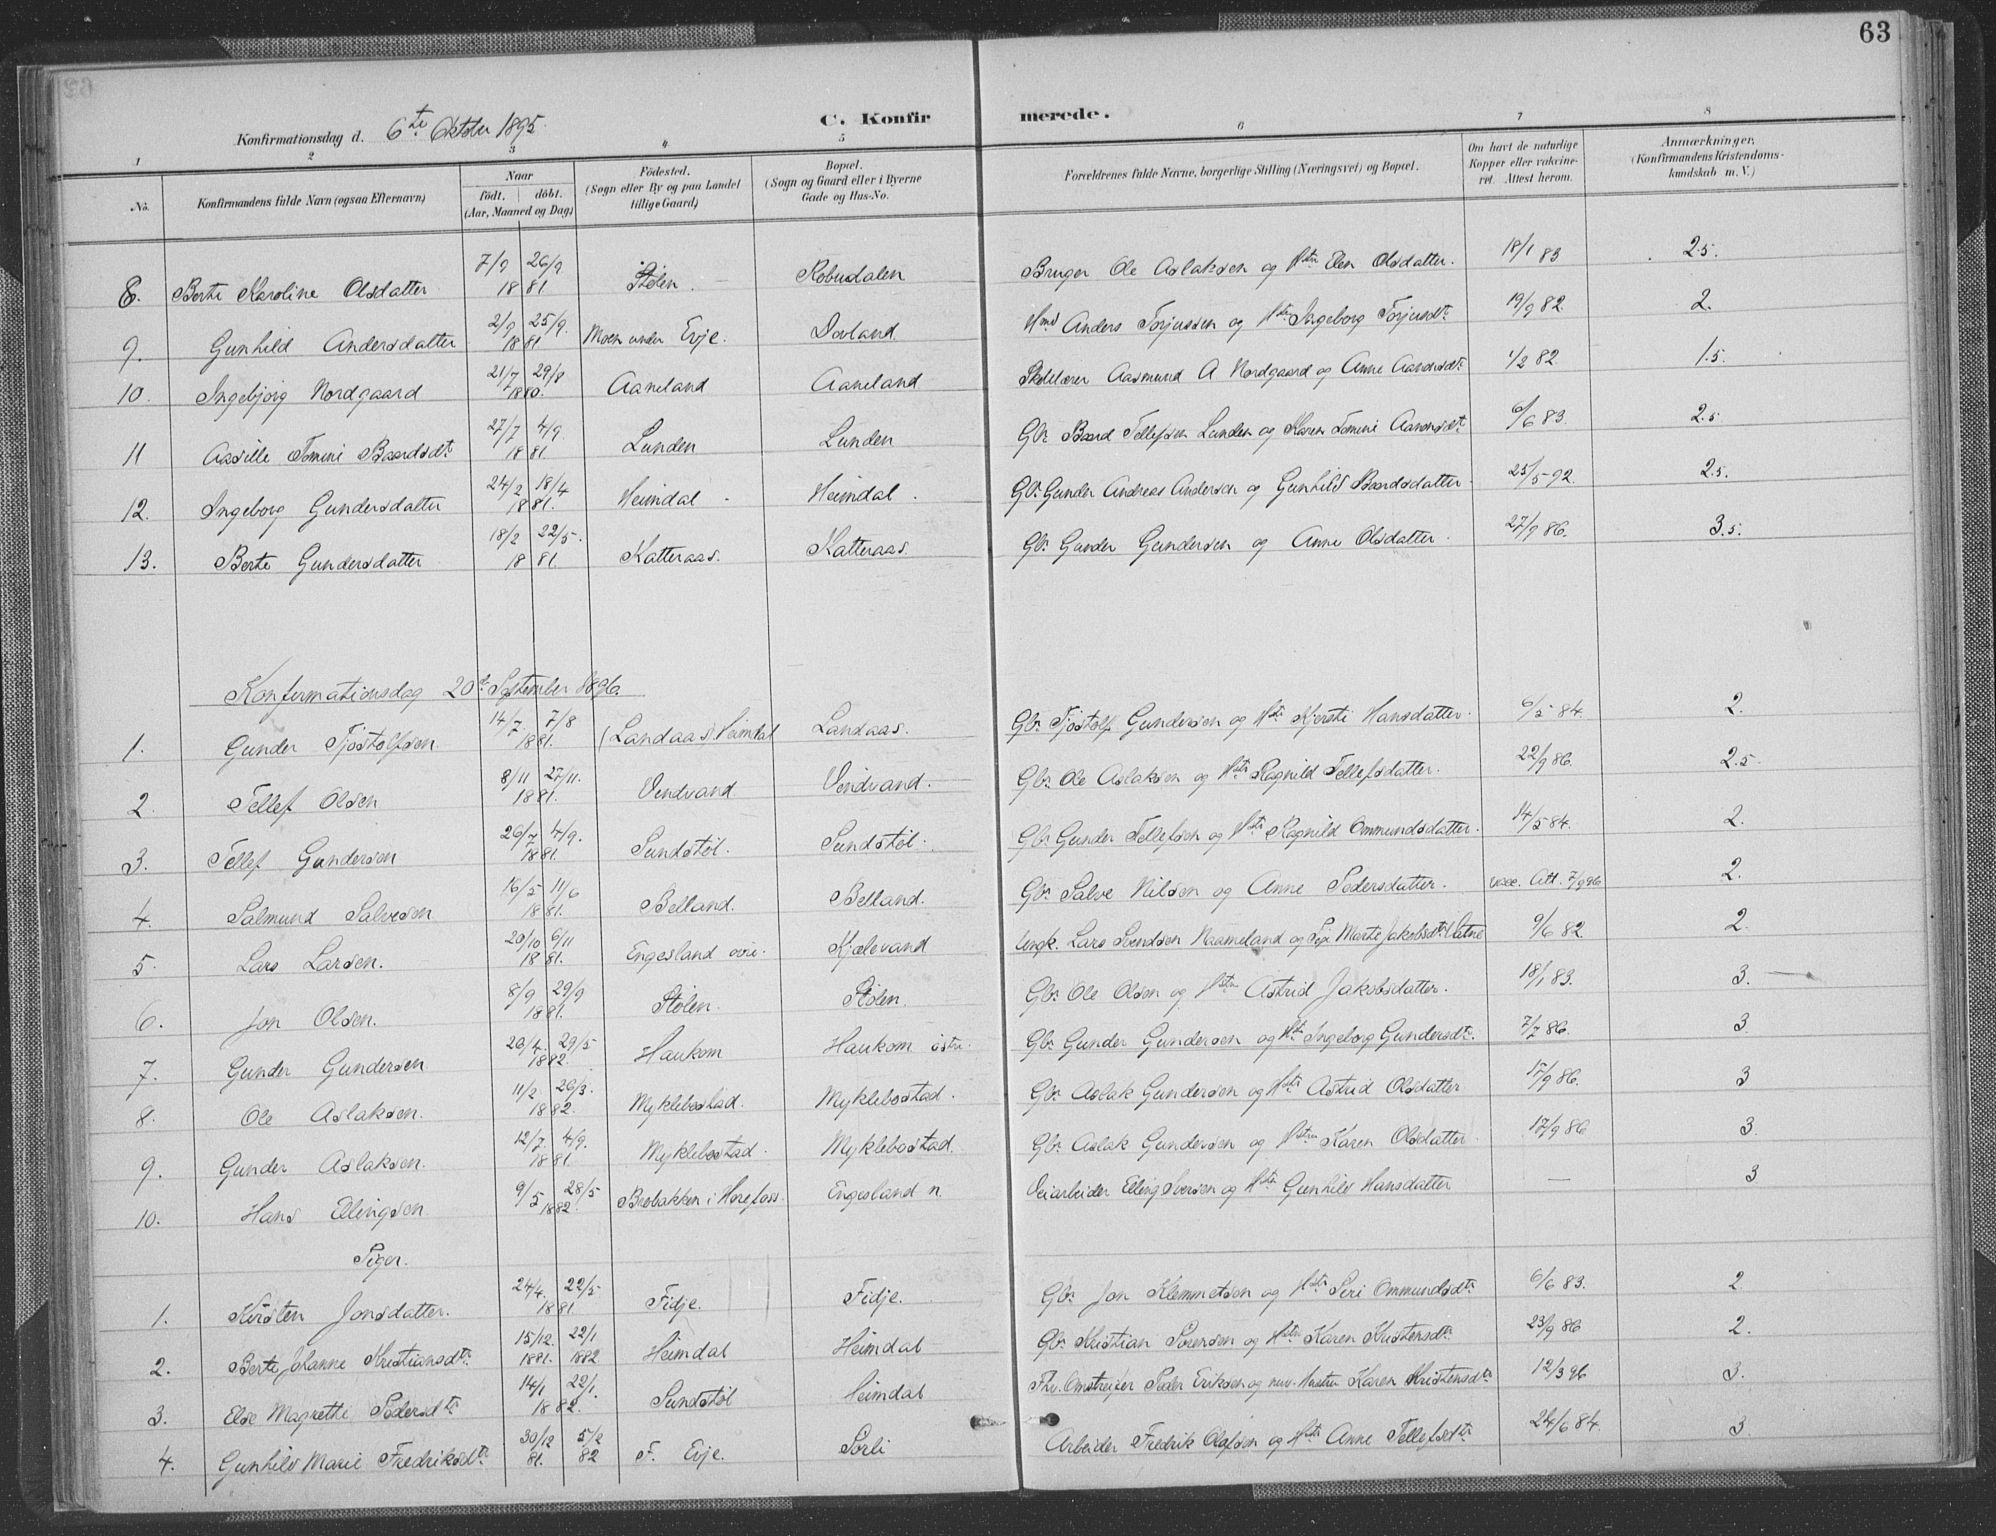 63
Konfirmationsdag d. 6te Oktober 1895.
C. Konfirmerede.
1 2 3 4 5 6 7 8
No. Konfirmandens fulde Navn (ogsaa Efternavn) Naar født. døbt. (Aar, Maaned og Dag) Fødested. (Sogn eller By og paa Landet tillige Gaard) Bopæl. (Sogn og Gaard eller i Byerne Gade og Hus-No. Forældrenes fulde Navne, borgerlige Stilling (Næringsvei) og Bopæl. Om havt de naturlige Kopper eller vakcineret. Attest herom. Anmærkninger, (Konfirmandens Kristendomskundskab m. V.)
8. Berte Karoline Olsdatter 7/9 26/9 1881 Stølen Robudalen Bruger Ole Aslaksen og Hstr Elen Olsdatter. 18/1 83 2.5.
9. Gunhild Andersdatter 2/9 25/9. 1881 Moen under Evje. Dovland Hmd Anders Torjussen og Hstr Ingeborg Torjusdtr 19/9 82. 2.
10. Ingebjørg Nordgaard 21/7 29/8 1880. Aaneland Aaneland Skolelærer Aasmund A Nordgaard og Anne Aanonsdtr 1/2 82 1.5.
11 Aasille Tomine Baardsdtr 27/7 4/9. 1881. Lunden Lunden Gbr Baard Tellefsen Lunden og Karen Tomine Aanonsdtr 6/6 83. 2.5
12. Ingeborg Gundersdatter 24/2 18/4 1881. Heimdal Heimdal. Gbr Gunder Andreas Andersen og Gunhild Baardsdatter 25/5-92. 2.5.
13. Berte Gundersdatter 18/2 22/5. 1881. Katteraas. Katteraas. Gbr Gunder Gundersen og Anne Olsdatter. 27/9 86. 3.5.
Konfirmationsdag 20de September 1896.
1. Gunder Tjøstolfsen 14/7 7/8 1881. (Landaas) Heimdal Landaas. Gbr Tjøstolf Gundersen og Hstr Kjersti Hansdatter. 6/5 84. 2.
2. Tellef Olsen 8/11 27/11. 1881. Vendvand Vendvand. Gbr Ole Aslaksen og Hstr Ragnild Tellefsdatter. 22/9 86. 2.5.
3. Tellef Gundersen 26/7 4/9. 1881. Sundstøl. Sundstøl. Gbr Gunder Tellefsen og Hstr Ragnild Ommundsdatter. 14/5 84. 2.
4 Salmund Salvesen 16/5 11/6 1881. Belland. Belland. Gbr Salve Nilsen og Anne Pedersdatter. vacc. Att. 7/9 96 2.
5. Lars Larsen. 20/10 6/11 1881. Engesland øvre. Kjælevand Ungk. Lars Svendsen Naameland og Pige Marte Jakobsdtr Vatne 9/6 82. 2.
6. Jon Olsen. 8/9 29/9 1881. Stølen. Stølen. Gbr Ole Olsen og Hstr Astrid Jakobsdatter. 18/1 83. 3.
7. Gunder Gundersen 20/4. 29/5 1882. Haukom Haukom østre. Gbr Gunder Gundersen og Hstr Ingeborg Gundersdtr. 7/7 86. 3
8. Ole Aslaksen. 11/2 26/3. 1882. Myklebostad. Myklebostad. Gbr Aslak Gundersen og Hstr Astrid Olsdatter 17/9 86. 3
9. Gunder Aslaksen. 12/7. 4/9. 1881. Myklebostad. Myklebostad. Gbr Aslak Gundersen og Hstru Karen Olsdatter. 17/9 86 3.
10. Hans Ellingsen 9/5 28/5 1882. Brobakken i Herefoss. Engesland n. Veiarbeider Elling Iversen og Hstr Gunhild Hansdatter — 3
Piger.
1. Kirsten Jonsdatter. 24/4. 22/5 1881 Fidje. Fidje. Gbr Jon Klemmetsen og Hstr Siri Ommundsdtr 6/6 83. 2.
2. Berte Johanne Kristiansdtr 15/12 1881. 22/1 1882 Heimdal Heimdal Gbr Kristian Sørensen og Hstru Karen Kristensdtr 23/9 86 2.
3. Else Magrethe Pedersdtr 14/1 22/1. 1882. Sundstøl Heimdal Fhv. Omstreifer Peder Eriksen og nuv. Hustru Karen Kristensdtr 12/3 96 3.
4. Gunhild Marie Fredriksdtr 30/12 81. 5/2 82 F. Evje. Sørli Arbeider Fredrik Olafsen og Hstr Anne Tellefsdtr 24/6 84. 3